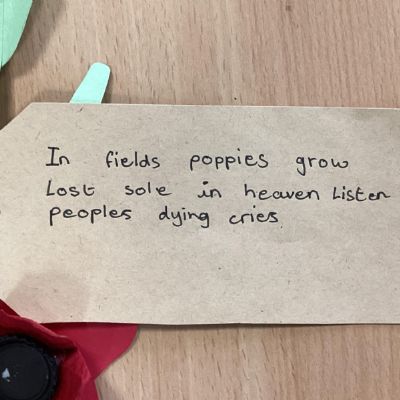 In fields poppies grow
Lost sole in heaven Listen
peoples dying cries.